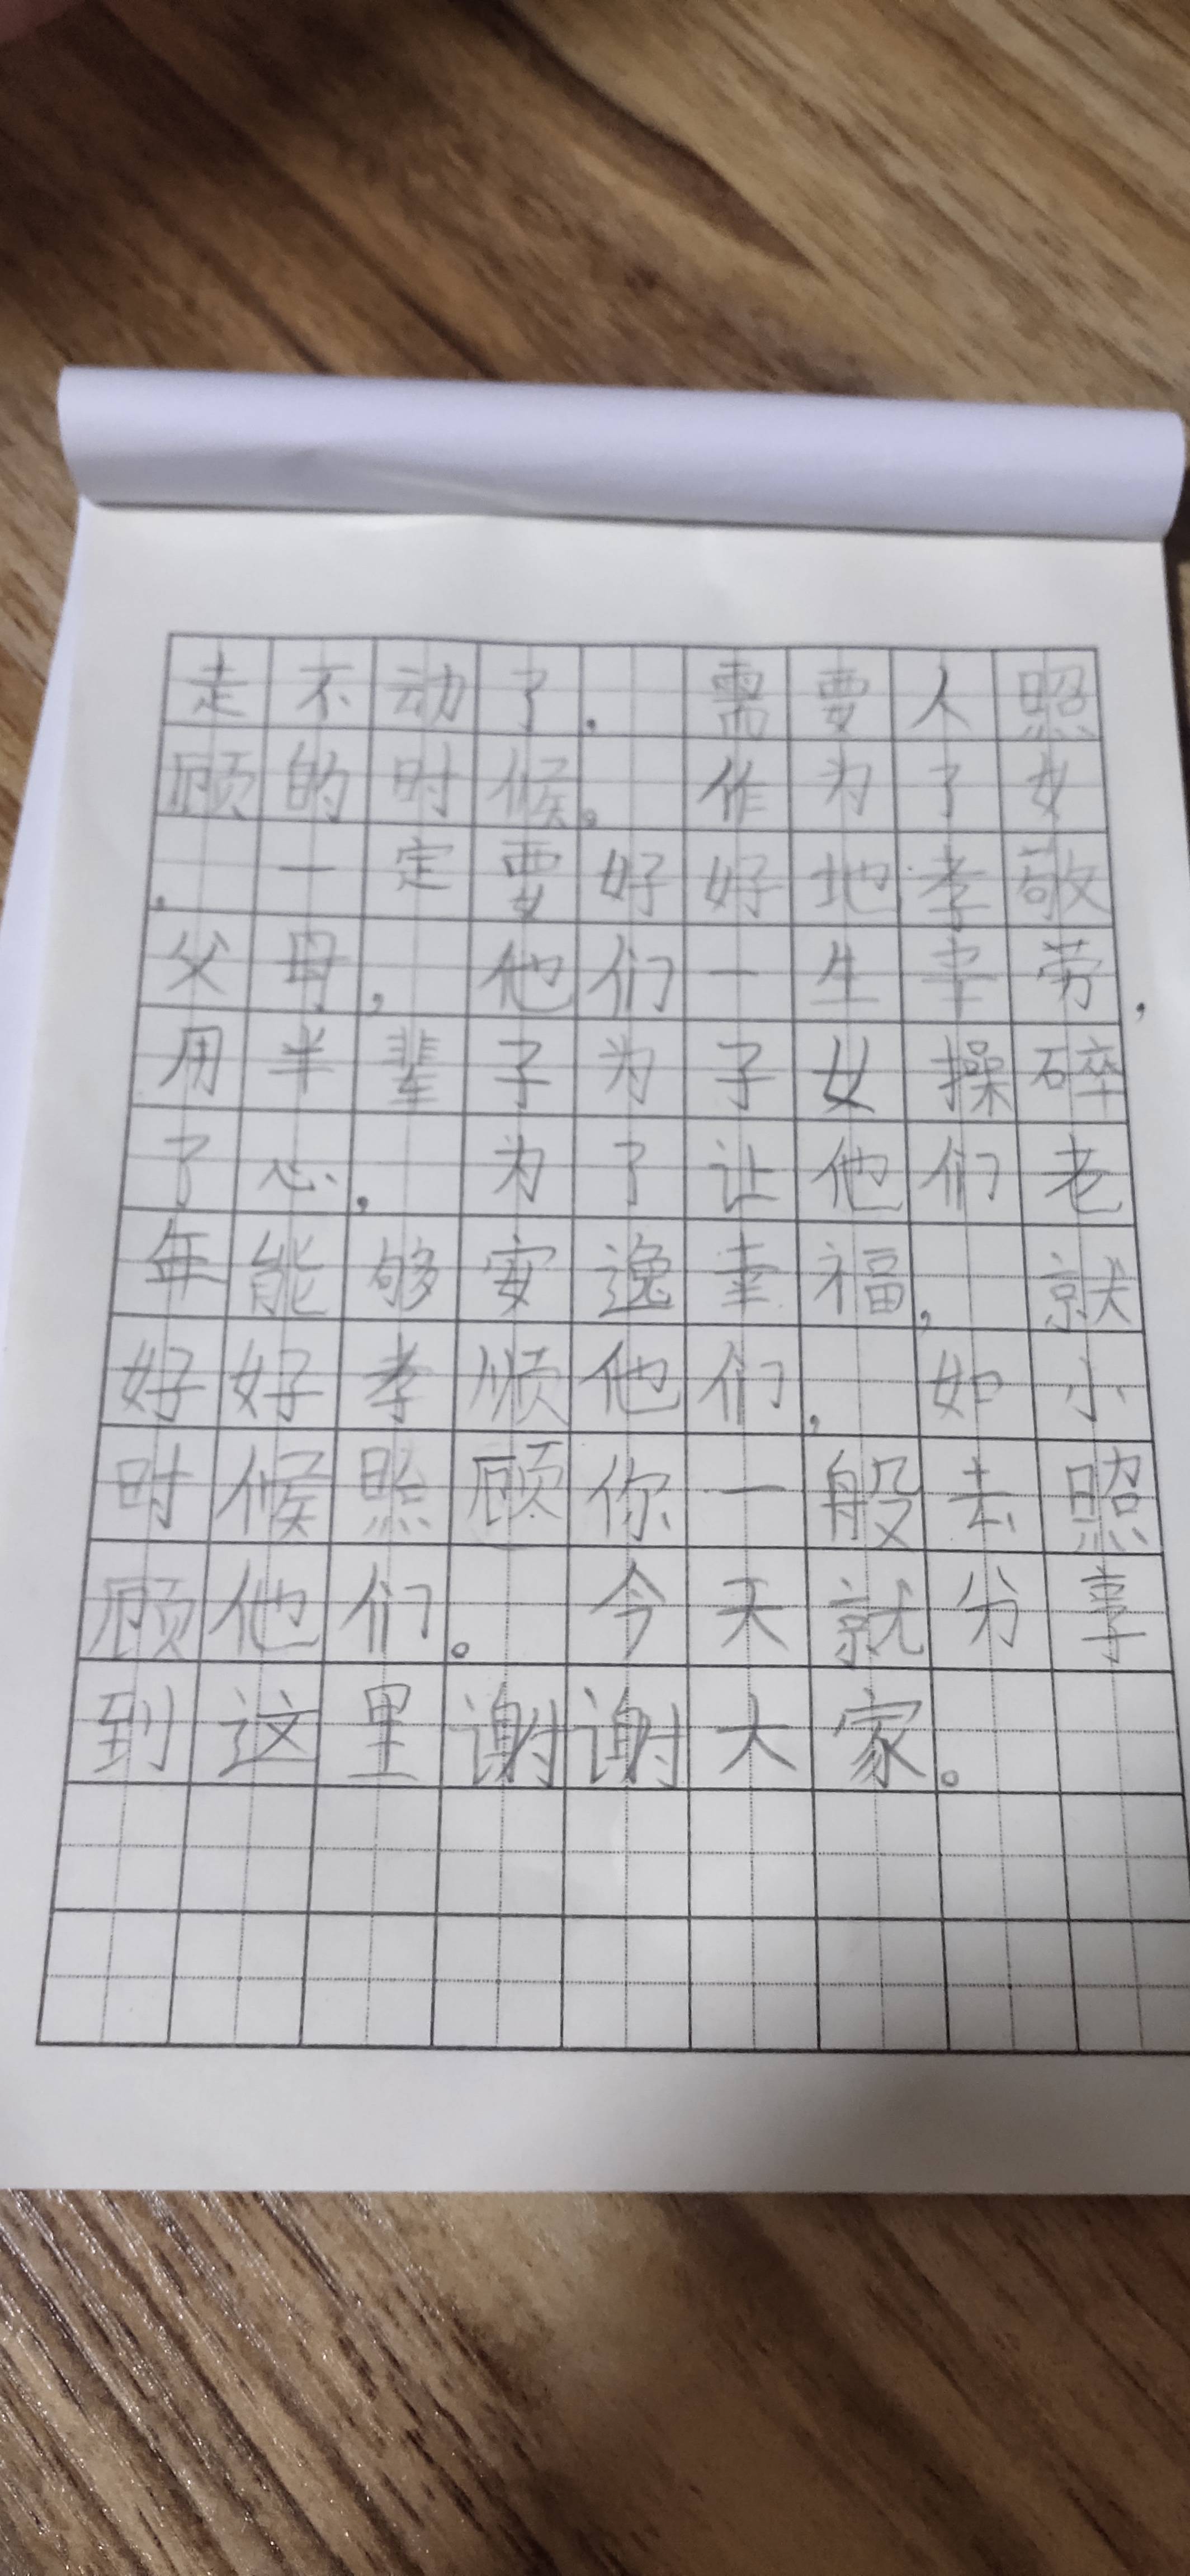 走不动了.需要人照
顾的时候。作为了女
.一定要好好地孝敬
父母,他们一生辛劳,
用半辈子为子女操碎
了心,为了让他们老
年能够安逸幸福,就
好好孝顺他们,如小
时候照顾你一般去照
顾他们。今天就分享
到这里谢谢大家。